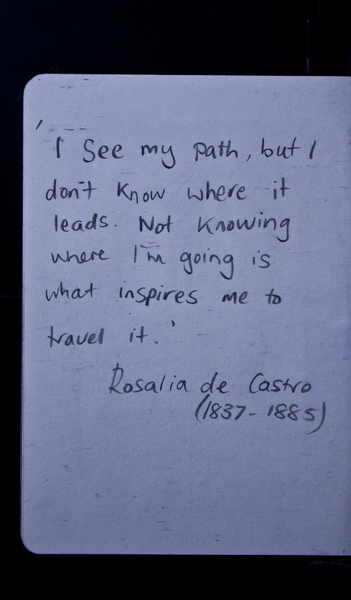 'I see my path, but I
don't know where it
leads. Not knowing
where I'm going is
what inspires me to
travel it.'
Rosalia de Castro
(1837-1885)